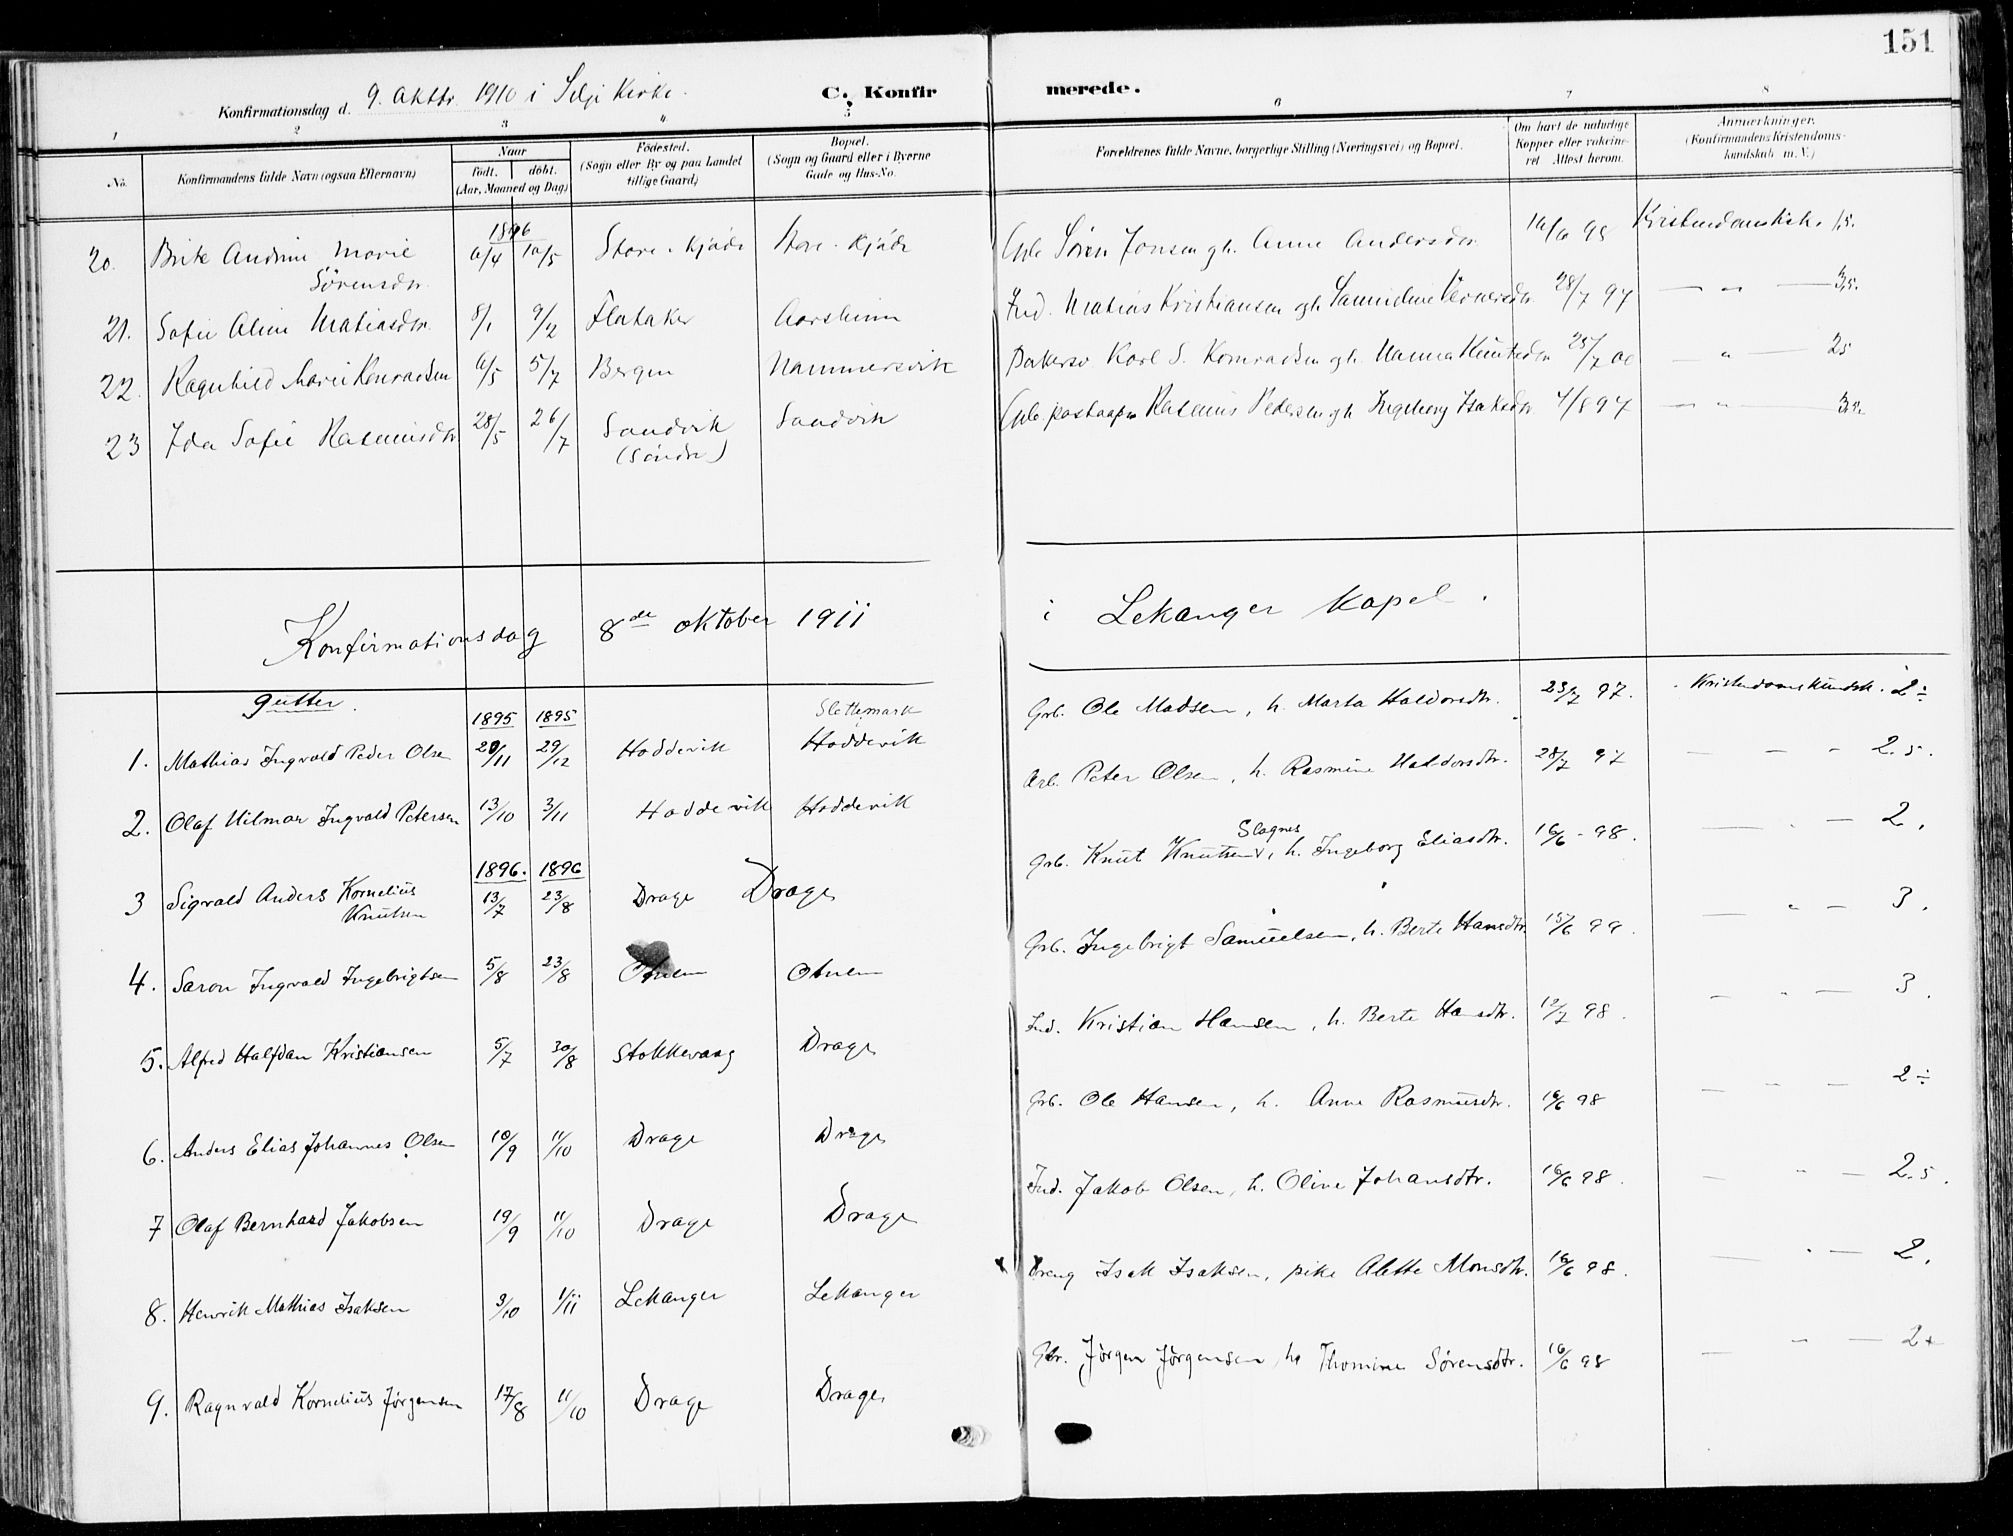 151
Konfirmationsdag d. 9. Oktbr. 1910 i Selje Kirke. C. Konfir merede.
1 2 3 4 5 6 7 8
No. Konfirmandens fulde Navn (ogsaa Efternavn) Naar født. døbt. (Aar, Maaned og Dag) Fødested. (Sogn eller By og paa Landet tillige Gaard) Bopæl. (Sogn og Gaard eller i Byerne Gade og Hus-No. Forældrenes fulde Navne, borgerlige Stilling (Næringsvei) og Bopæl. Om havt de naturlige Kopper eller vakcineret Attest herom. Anmærkninger. (Konfirmandens Kristendomskundskab m. V.)
1896
20. Brite Andrine Marie Sørensdtr. 6/4 10/5 Store-Kjøde Store-Kjøde Søren Jonsen gh. Anne Andersdtr. 98 Kristendomsksk. 1,5.
21. Sofie Aline Matiasdtr. 8/1 9/2 Flataker Aarsheim Ind. Matias Kristiansen gh. 28/7 97 — „ — 3,5.
22. Ragnhild Marie Konradsen 6/5 5/7 Bergen Hammersvik Karl S. Konradsen gh. Hanna 25/7 00 — „ — 25
23 Ida Sofie Rasmusdtr. 28/5 26/7 Sandvik (Søndre) Sandvik Rasmus Pedersen gh. Ingeborg Isaksdtr 4/8 97 — „ —
Konfirmationsdag 8de oktober 1911 i Lekanger Kapel.
gutter.
1895 1895
1. Mathias Ingvald Peder Olsen 20/11 29/12 Hoddevik Slettemark Hoddevik Grb. Ole Madsen, h. Marta Haldorsdtr. 23/7 97. Kristendomskundsk. 2÷
2. Olaf Hilmar Ingvald Petersen 13/10 3/11 Hoddevik Hoddevik Arb. Peter Olsen, h. Rasmine Haldorsdtr. 28/7 97 — — „ 2.5.
1896. 1896
3 Sigvald Anders Kornelius Knutsen 13/7 23/8 Drage Drage Grb. Knut Knutsen Slagnes, h. Ingeborg Eliasdtr. 16/6 - 98. — „ — 2.
4. Saron Ingvald Ingebrigtsen 5/8 23/8 Otnem Otnem Grb. Ingebrigt Samuelsen, h. Berte Hansdtr. 15/6 99. — „ — 3.
5. Alfred Halfdan Kristiansen 5/7 30/8 Stokkevaag Drage Ind. Kristian Hansen, h. Berte Hansdtr. 12/7 98. — „ — 3.
6. Anders Elias Johannes Olsen 10/9 11/10 Drage Drage Grb. Ole Hansen, h. Anne Rasmusdtr. 16/6 98 — „ — 2÷
7 Olaf Bernhard Jakobsen 19/9 11/10 Drage Drage Ind. Jakob Olsen, h. Oline Johansdtr. 16/6 98. — „ — 2.5.
8. Henrik Mathias Isaksen 3/10 1/11 Lekanger Lekanger Dreng Isak Isaksen, pike Alette Monsdtr. 16/6 98. — „ — 2.
9. Ragnvald Kornelius Jørgensen 17/8 11/10 Drage Drage Gbr. Jørgen Jørgensen, h. Thomine Sørensdtr. 16/6 98 — „ — 2+